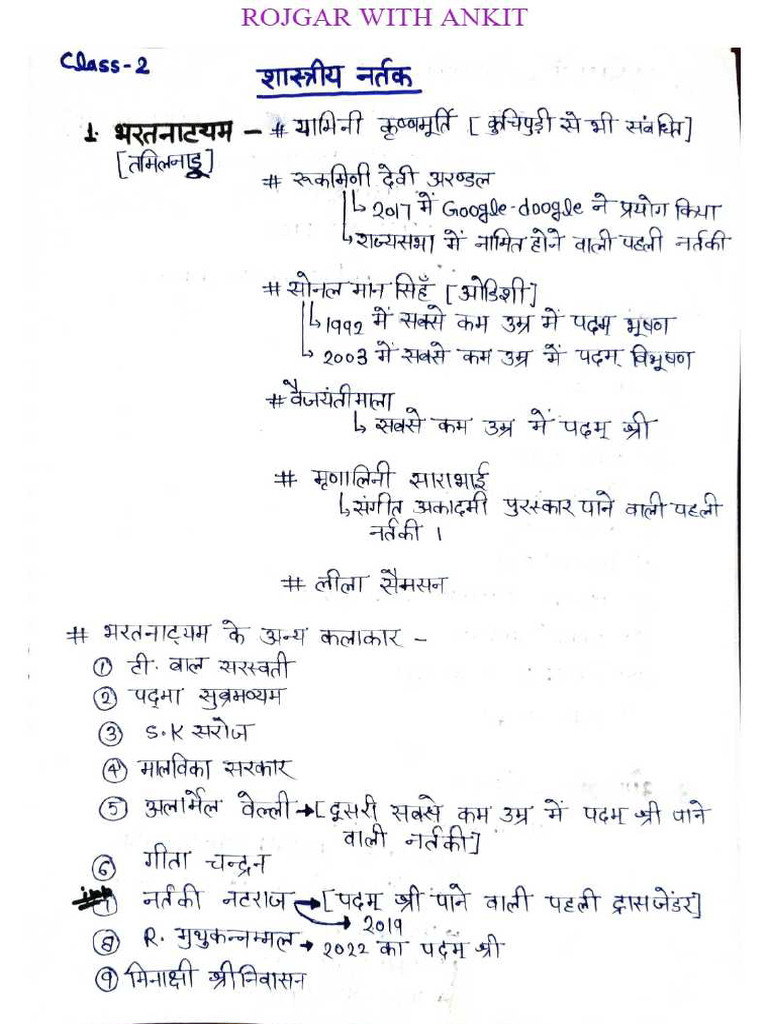 ROJGAR WITH ANKIT
Class-2
शास्त्रीय नर्तक
1. भरतनाट्यम - # यामिनी कृष्णमूर्ति [कुचिपुड़ी से भी संबंधित]
[तमिलनाडू]
# रूकमिणी देवी अरुण्डल
↳ 2017 में Google-doogle ने प्रयोग किया
↳ राज्यसभा में नामित होने वाली पहली नर्तकी
# सोनल मान सिहँ [ओडिशी]
↳ 1992 में सबसे कम उम्र में पद्म भूषण
↳ 2003 में सबसे कम उम्र में पदम् विभूषण
# वैजयंतीमाला
↳ सबसे कम उम्र में पदम् श्री
# मृणालिनी साराभाई
↳ संगीत अकादमी पुरस्कार पाने वाली पहली
नर्तकी ।
# लीला सैमसन
# भरतनाट्यम के अन्य कलाकार -
① टी. बाल सरस्वती
② पद्मा सुब्रमव्यम
③ S.K सरोज
④ मालविका सरकार
⑤ अलार्मेल वेल्ली → [दूसरी सबसे कम उम्र में पदम् श्री पाने
वाली नर्तकी]
⑥ गीता चन्द्रन
⑦ नर्तकी नटराज → [पदम् श्री पाने वाली पहली ट्रासजेंडर]
→ 2019
⑧ R. मुथुकन्नम्मल → 2022 का पदम् श्री
⑨ मिनाक्षी श्रीनिवासन